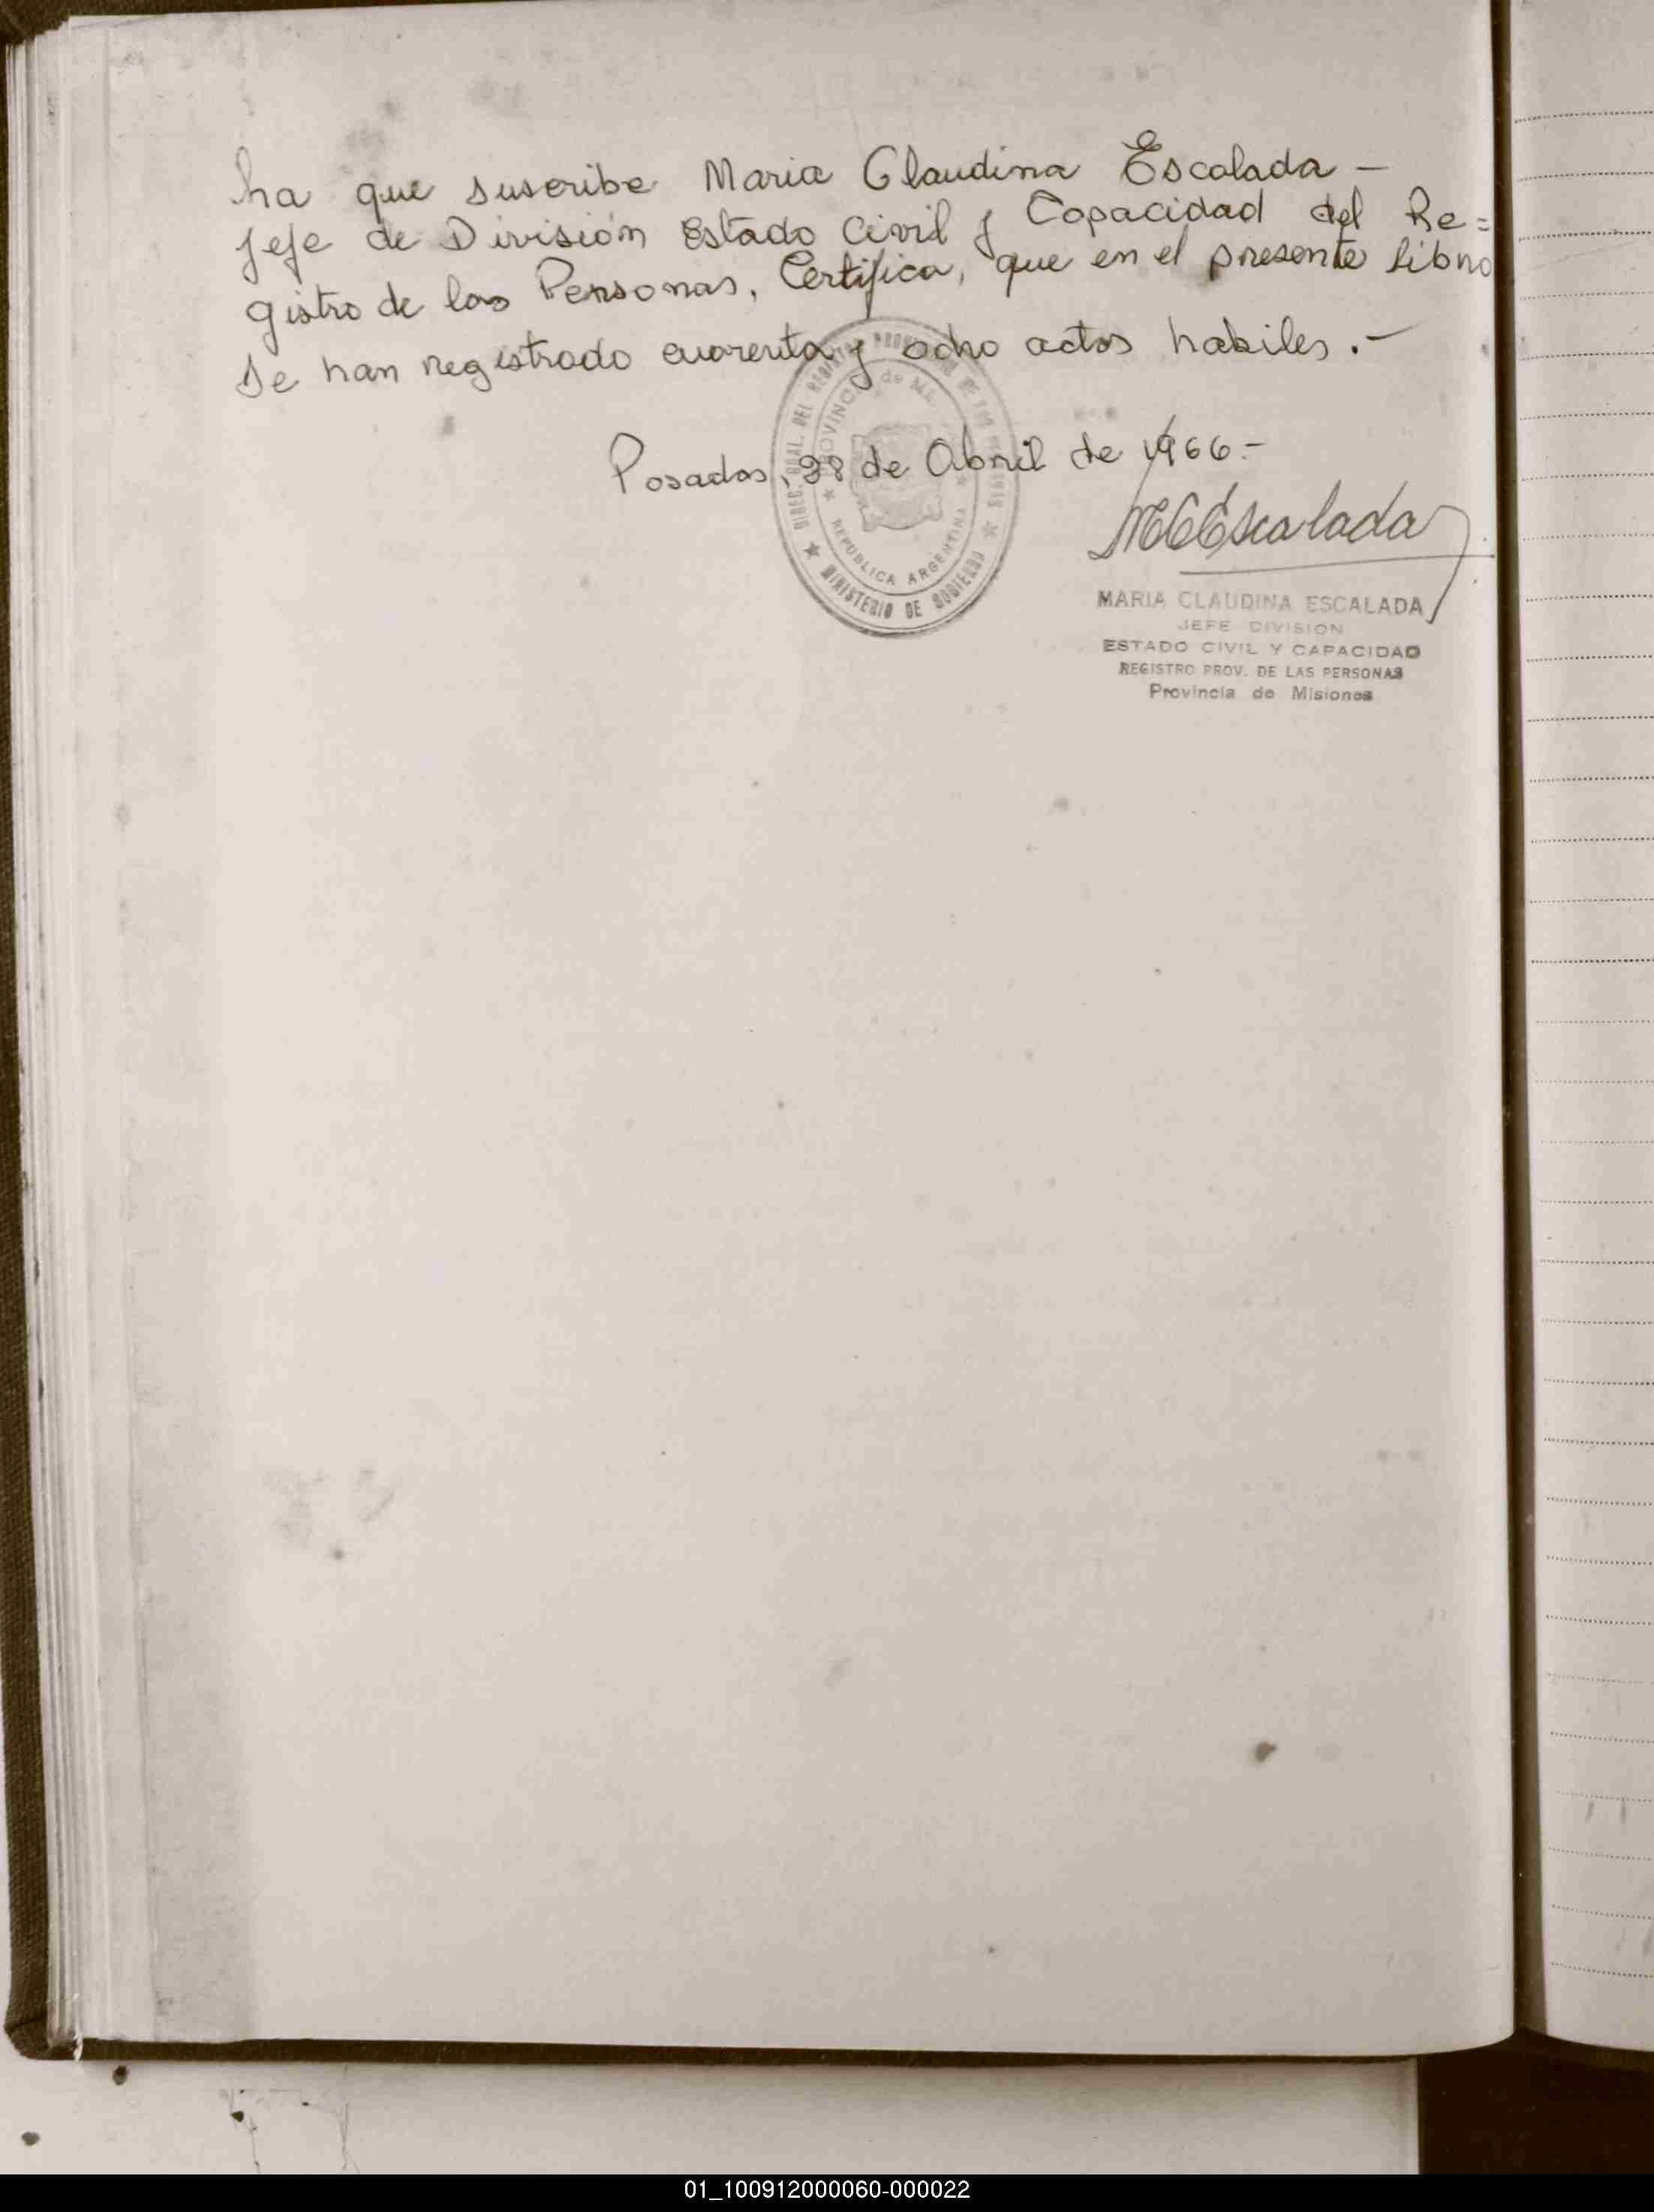 La que suscribe Maria Claudina Escalada —
Jefe de División Estado Civil y Capacidad del Re=
gistro de las Personas, Certifica, que en el presente libro
se han registrado cuarenta y ocho actos habiles.—
Posadas, 28 de Abril de 1966.—
DIREC. GRAL. DEL REGISTRO PROVINCIAL DE LAS PERSONAS
PROVINCIA de
REPUBLICA ARGENTINA
MINISTERIO DE GOBIERNO
MCEscalada
MARIA CLAUDINA ESCALADA
JEFE DIVISION
ESTADO CIVIL Y CAPACIDAD
REGISTRO PROV. DE LAS PERSONAS
Provincia de Misiones
01_100912000060-000022